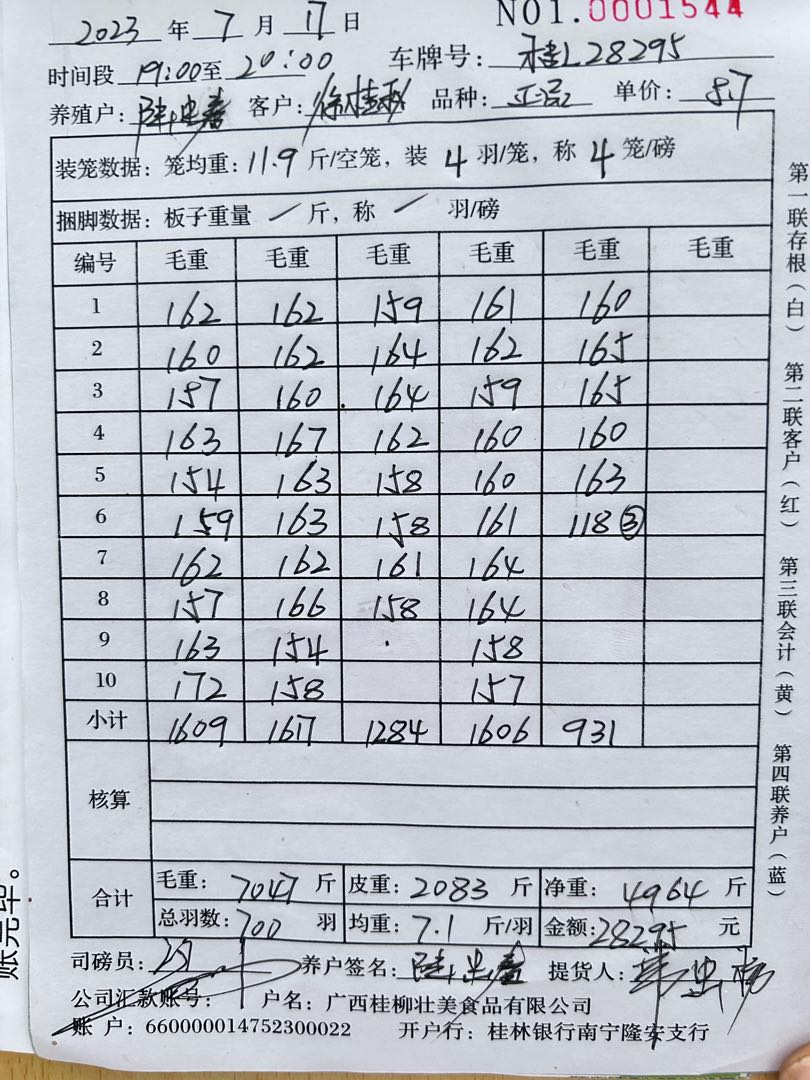 NO1.0001544
2023 年 7 月 17 日
时间段 19:00至 20:00 车牌号: 桂L28295
养殖户: 客户: 徐桂秋 品种: 单价: 5.7
装笼数据: 笼均重: 11.9 斤/空笼, 装 4 羽/笼, 称 4 笼/磅
捆脚数据: 板子重量 / 斤, 称 / 羽/磅
编号 毛重 毛重 毛重 毛重 毛重 毛重
1 162 162 159 161 160
2 160 162 164 162 165
3 157 160 164 159 165
4 163 167 162 160 160
5 154 163 158 160 163
6 159 163 158 161 118③
7 162 162 161 164
8 157 166 158 164
9 163 154 158
10 172 158 157
小计 1609 1617 1284 1606 931
核算
合计 毛重: 7047 斤 皮重: 2083 斤 净重: 4964 斤
总羽数: 700 羽 均重: 7.1 斤/羽 金额: 28295 元
司磅员: 养户签名: 提货人:
公司汇款账号: 户名: 广西桂柳壮美食品有限公司
账 户: 660000014752300022 开户行: 桂林银行南宁隆安支行
第一联存根(白) 第二联客户(红) 第三联会计(黄) 第四联养户(蓝)